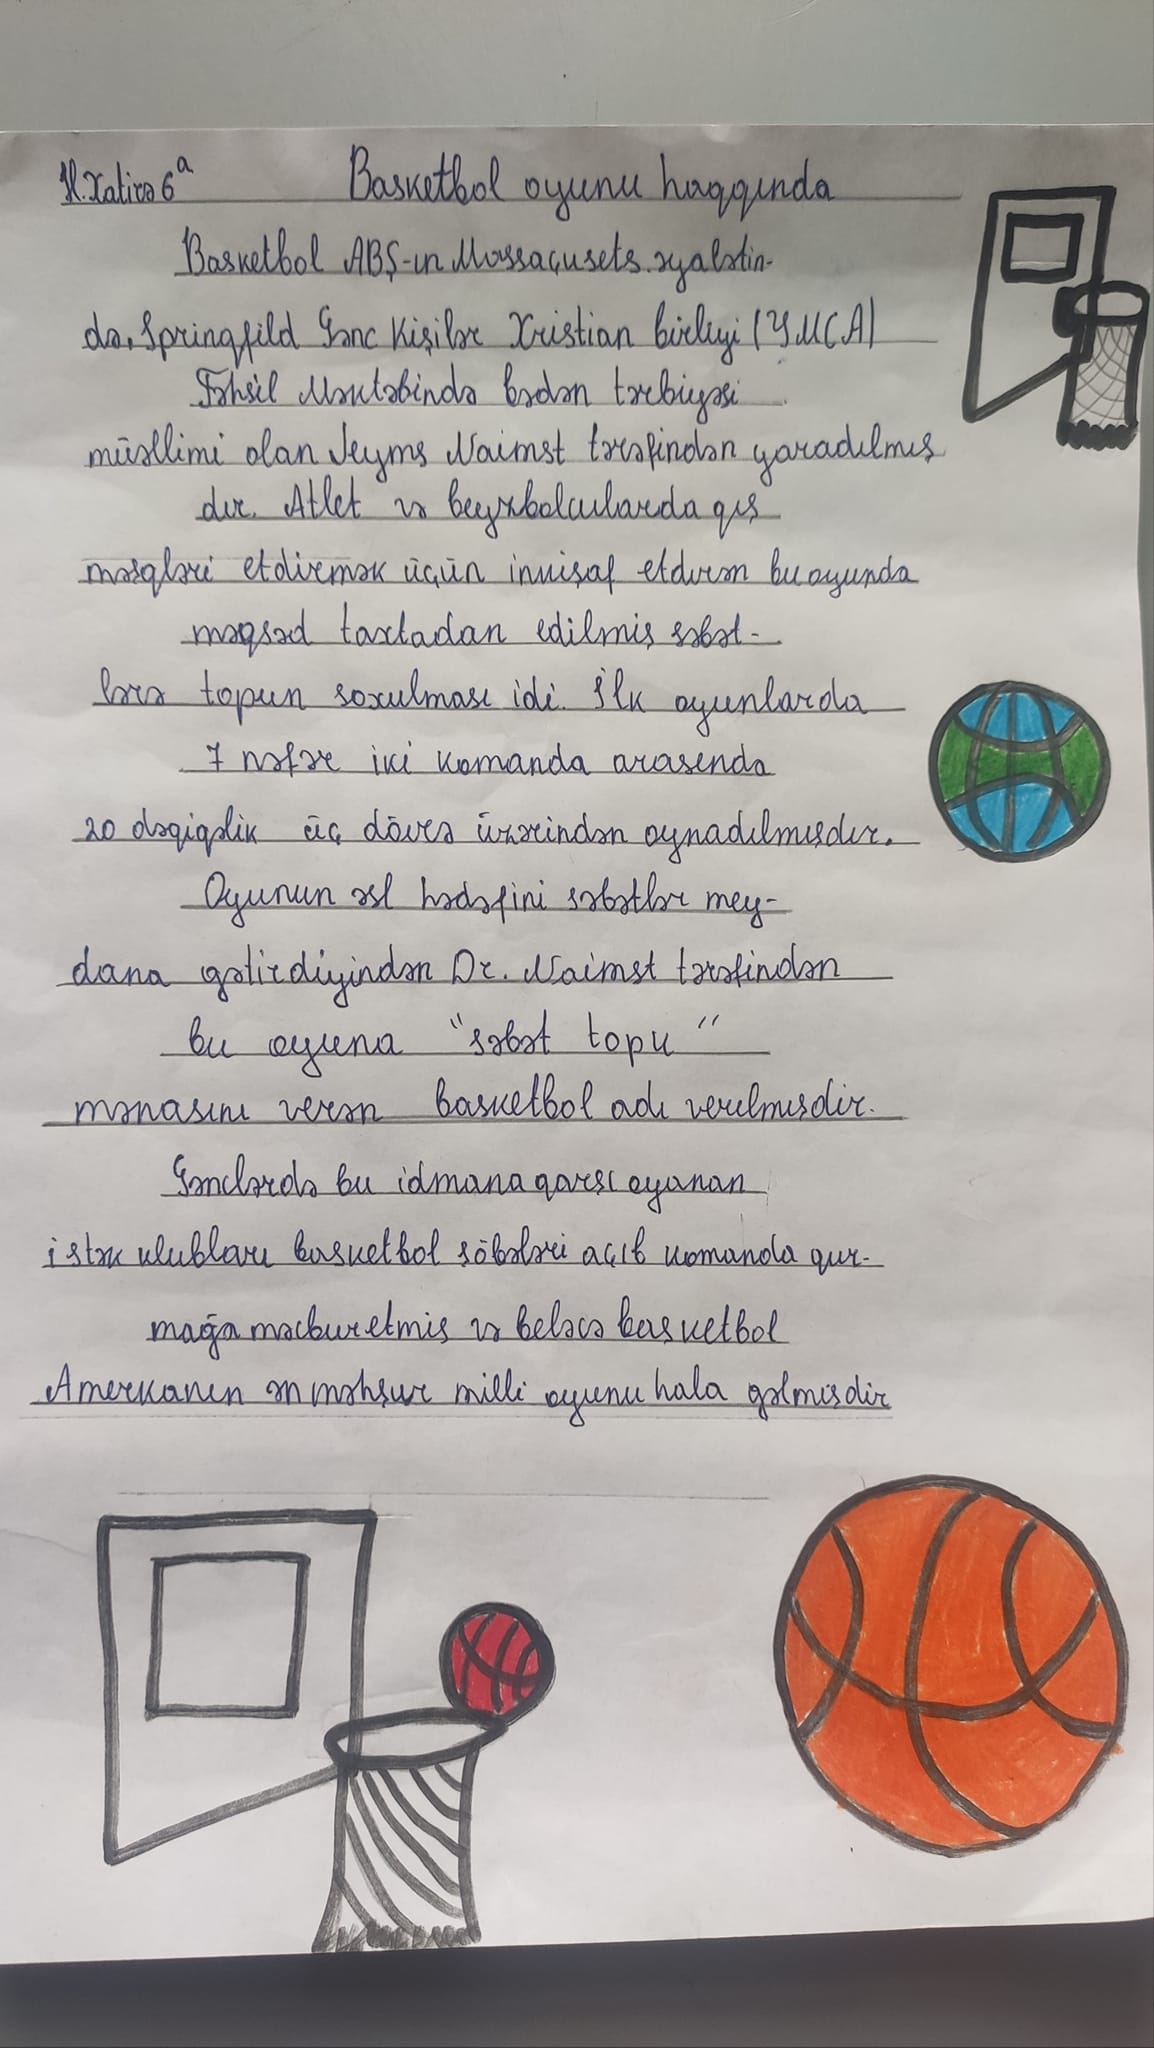 H.Xatirə 6ᵃ Basketbol oyunu haqqında
Basketbol ABŞ-ın Massaçusets əyalətin-
də, Springfild Gənc Kişilər Xristian birliyi (YMCA)
Təhsil Məktəbində bədən tərbiyəsi
müəllimi olan Jeyms Naimst tərəfindən yaradılmış
dır. Atlet və beyzbolcularda qış
məşqləri etdirmək üçün inkişaf etdirən bu oyunda
məqsəd taxtadan edilmiş səbət-
lərə topun soxulması idi. İlk oyunlarda
7 nəfər iki komanda arasında
20 dəqiqəlik üç dövrə üzərindən oynadılmışdır.
Oyunun əsl hədəfini səbətlər mey-
dana gətirdiyindən Dr. Naimst tərəfindən
bu oyuna "səbət topu"
mənasını verən basketbol adı verilmişdir.
Gənclərdə bu idmana qarşı oyanan
istək klubları basketbol şöbələri açıb komanda qur-
mağa məcbur etmiş və beləcə basketbol
Amerkanın ən məhşur milli oyunu hala gəlmişdir